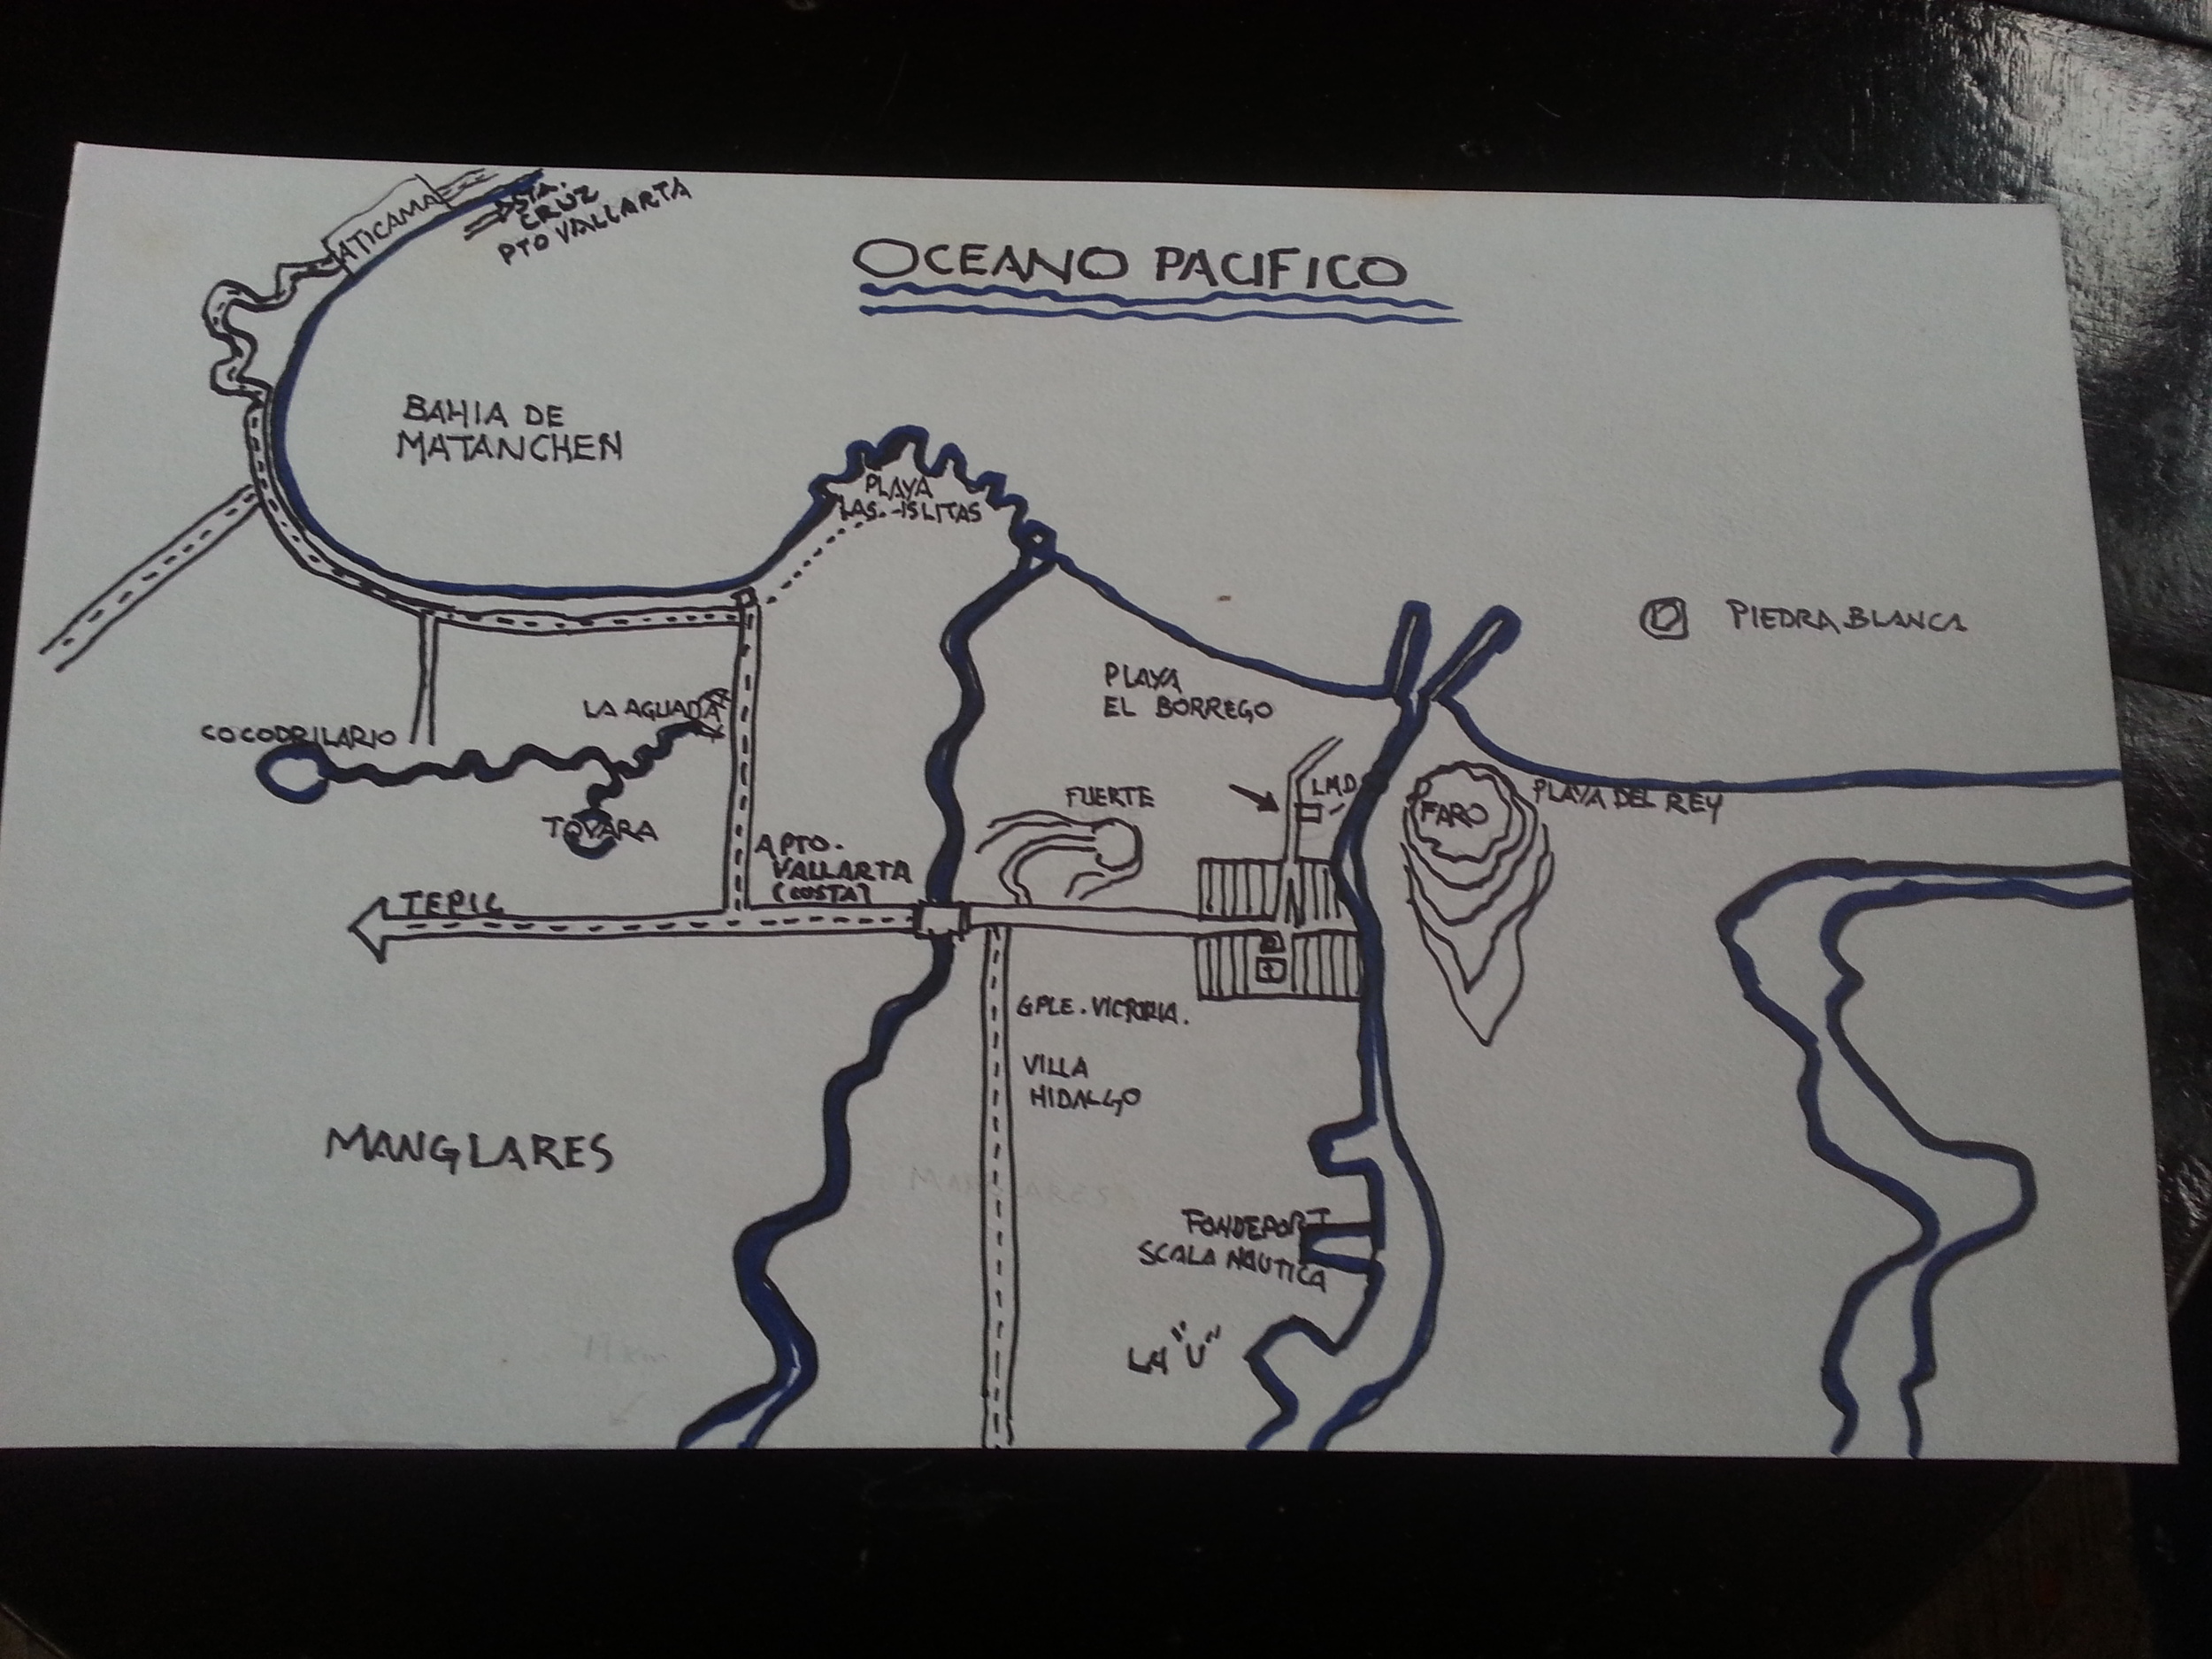 ATICAMA
STA.
CRUZ
PTO VALLARTA
OCEANO PACIFICO
BAHIA DE
MATANCHEN
PLAYA
LAS.-ISLITAS
PIEDRA BLANCA
PLAYA
EL BORREGO
LA AGUADA
COCODRILARIO
TOVARA
FUERTE
L.M.D
FARO
PLAYA DEL REY
A PTO.
VALLARTA
(COSTA)
TEPIC
GPLE. VICTORIA.
VILLA
HIDALGO
MANGLARES
MANGLARES
FONDEPORT
SCALA NAUTICA
LA "U"